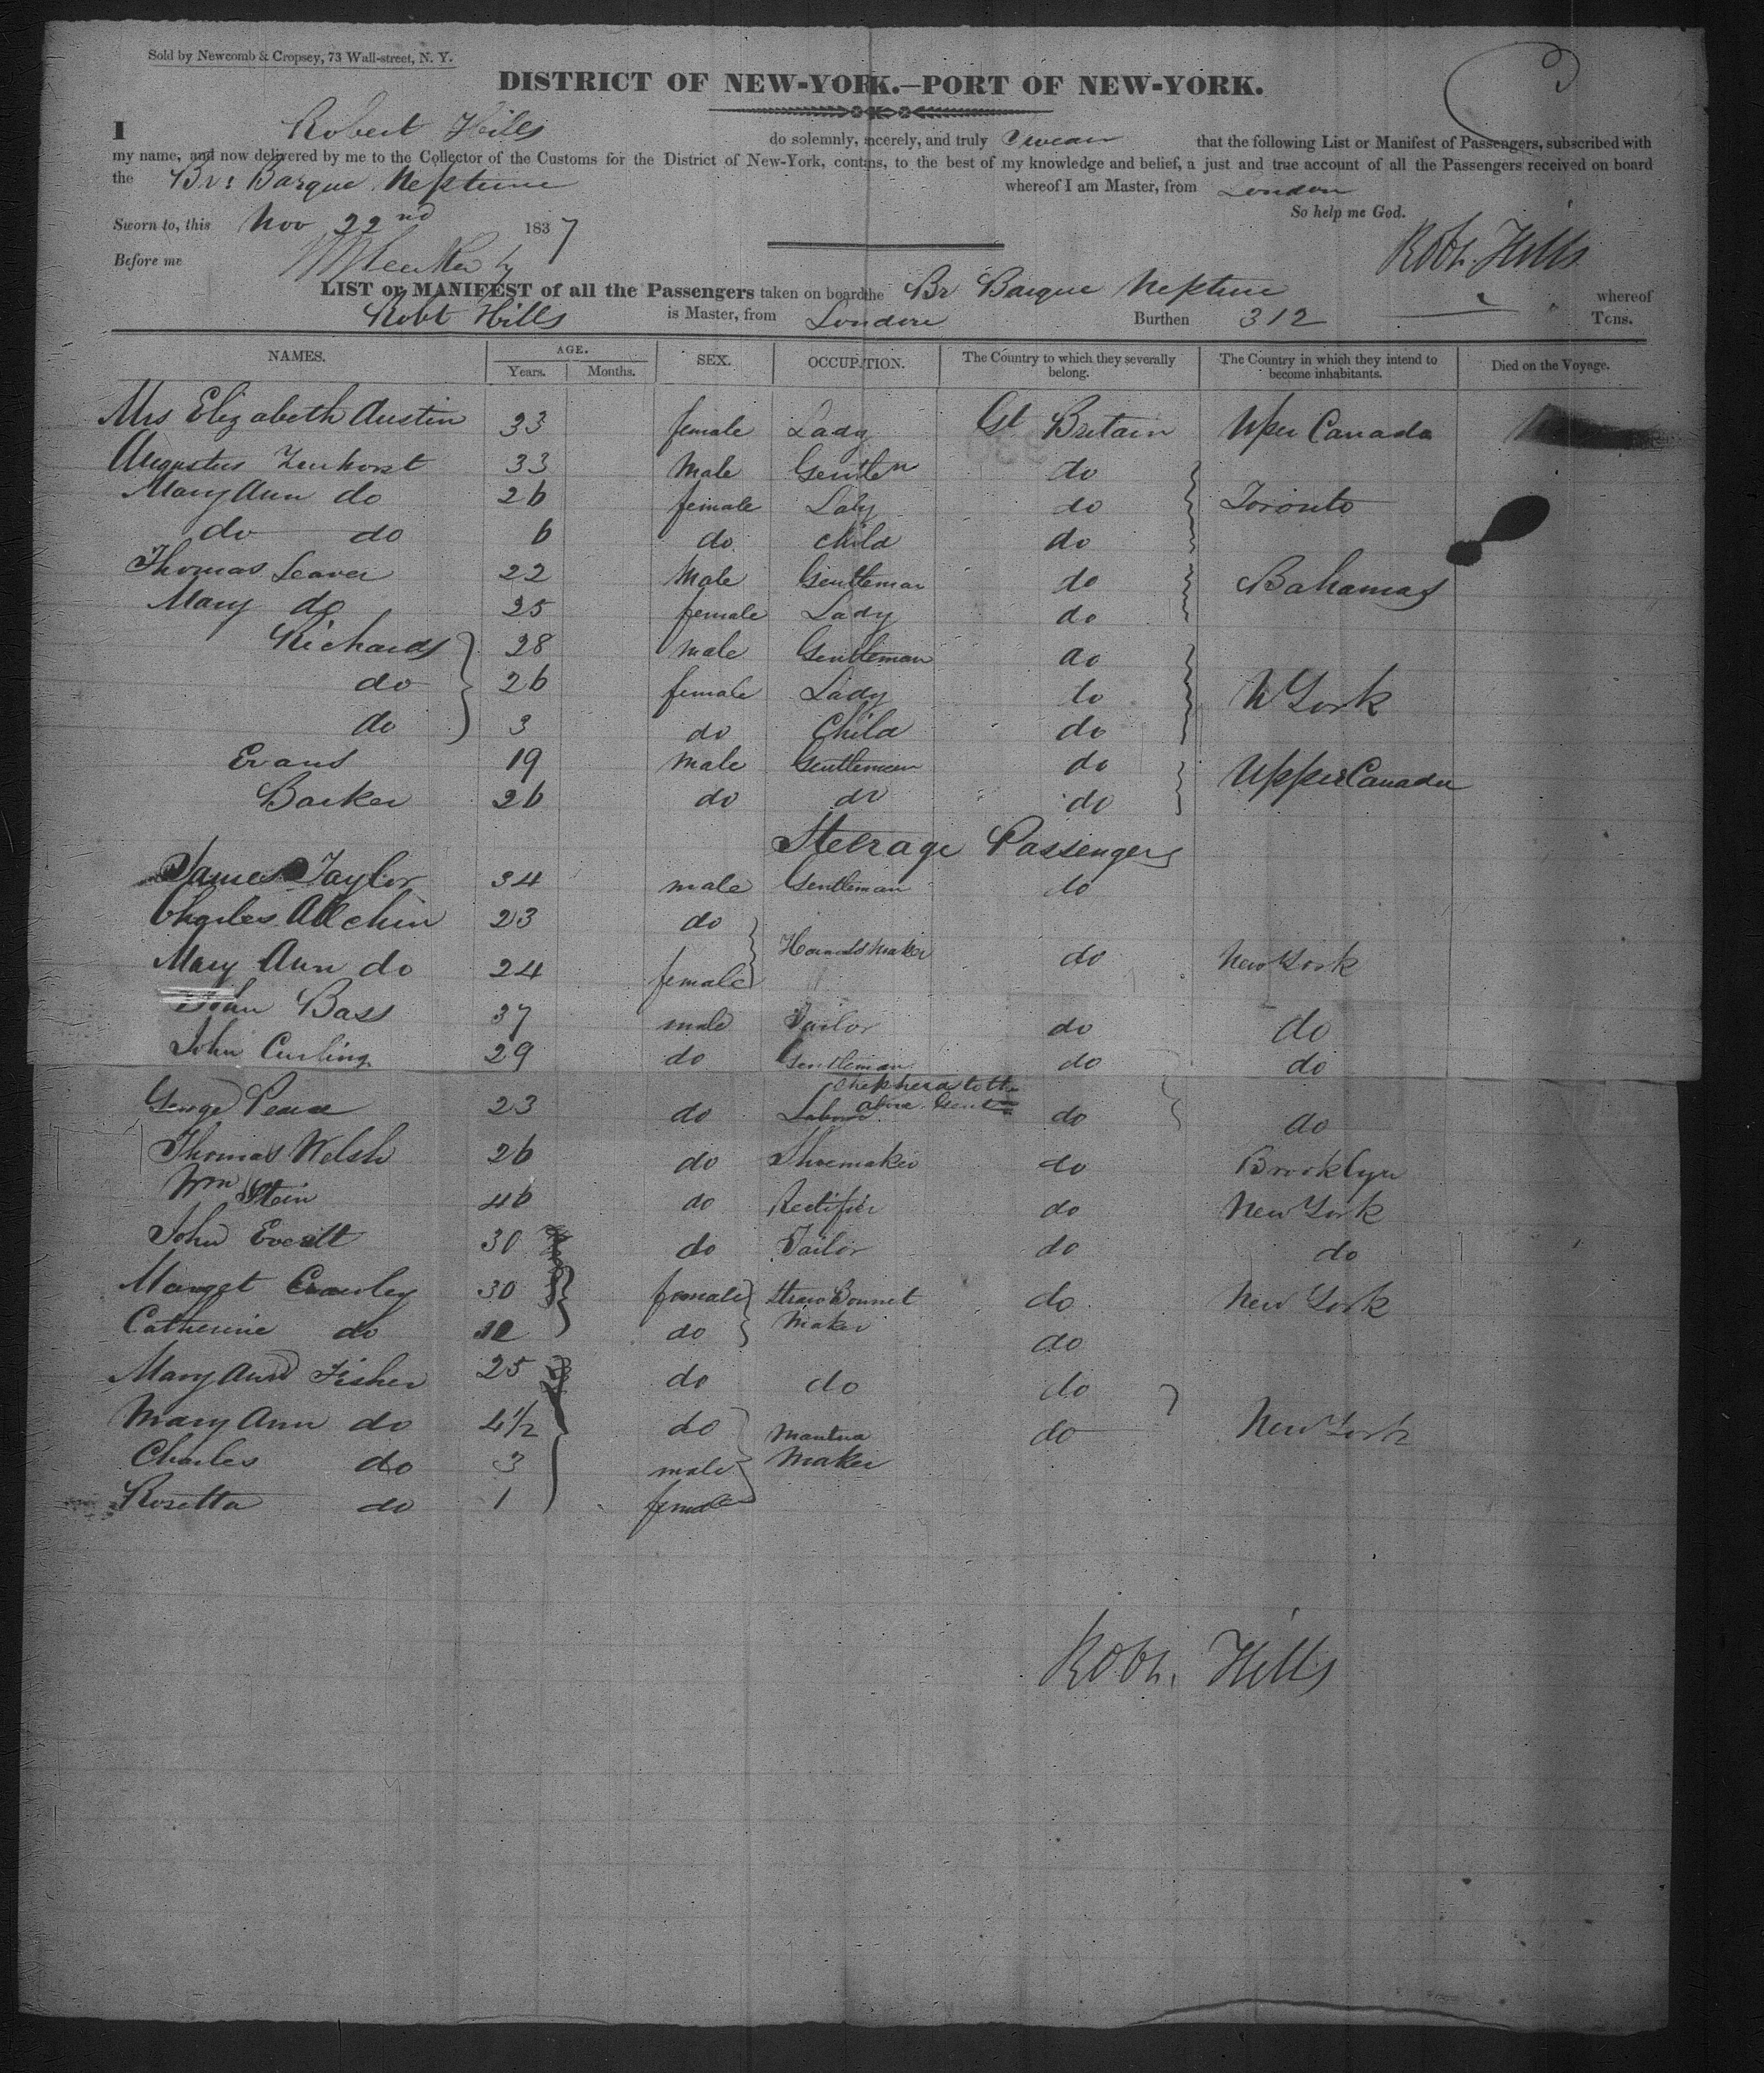 Sold by Newcomb & Cropsey, 73 Wall-street, N. Y.
DISTRICT OF NEW-YORK.—PORT OF NEW-YORK.
I Robert Hills do solemnly, sincerely, and truly Swear that the following List or Manifest of Passengers, subscribed with
my name, and now delivered by me to the Collector of the Customs for the District of New-York, contains, to the best of my knowledge and belief, a just and true account of all the Passengers received on board
the Br: Barque Neptune whereof I am Master, from London
So help me God.
Sworn to, this Nov 22nd 1837
Robt. Hills
Before me
LIST or MANIFEST of all the Passengers taken on board the Br Barque Neptune whereof
Robt Hills is Master, from London Burthen 312 Tons.
NAMES. AGE. SEX. OCCUPATION. The Country to which they severally belong. The Country in which they intend to become inhabitants. Died on the Voyage.
Years. Months.
Mrs Elizabeth Austin 33 female Lady Gt Britain Uper Canada
Augustus 33 Male Gentlen do
Mary Ann do 26 female Lady do Toronto
do do 6 do child do
Thomas Leaver 22 Male Gentleman do Bahamas
Mary do 25 female Lady do
Richards 28 male Gentleman do
do 26 female Lady do N York
do 3 do Child do
Evans 19 male Gentleman do Upper Canada
Barker 26 do do do
Steerage Passengers
James Taylor 34 male Gentleman do
Charles Allchin 23 do
Mary Ann do 24 female maker do New York
John Bass 37 male Tailor do do
John Curling 29 do Gentleman do do
Shephera to the
above Gent
George Pearce 23 do Labour do do
Thomas Welsh 26 do Shoemaker do Brooklyn
Wm Stein 46 do Rectifier do New York
John Everitt 30 do Tailor do do
Marget Crawley 30 female Straw Bonnet do New York
Catherine do do Maker do
Mary Ann Fisher 25 do do do
Mary Ann do 4½ do Mantua do New York
Charles do 3 male Maker
Rosetta do 1 female
Robt. Hills